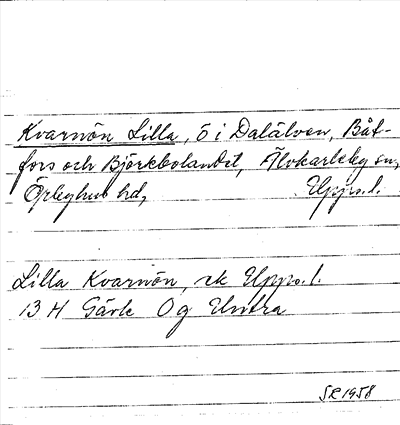 Kvarnön Lilla, ö i Dalälven, Båt-
fors och Björkbolandet, Älvkarleby sn,
Örbyhus hd, Upps. l.
Lilla Kvarnön, ek Upps. l.
13 H Gävle 0 g Untra
SR 1958